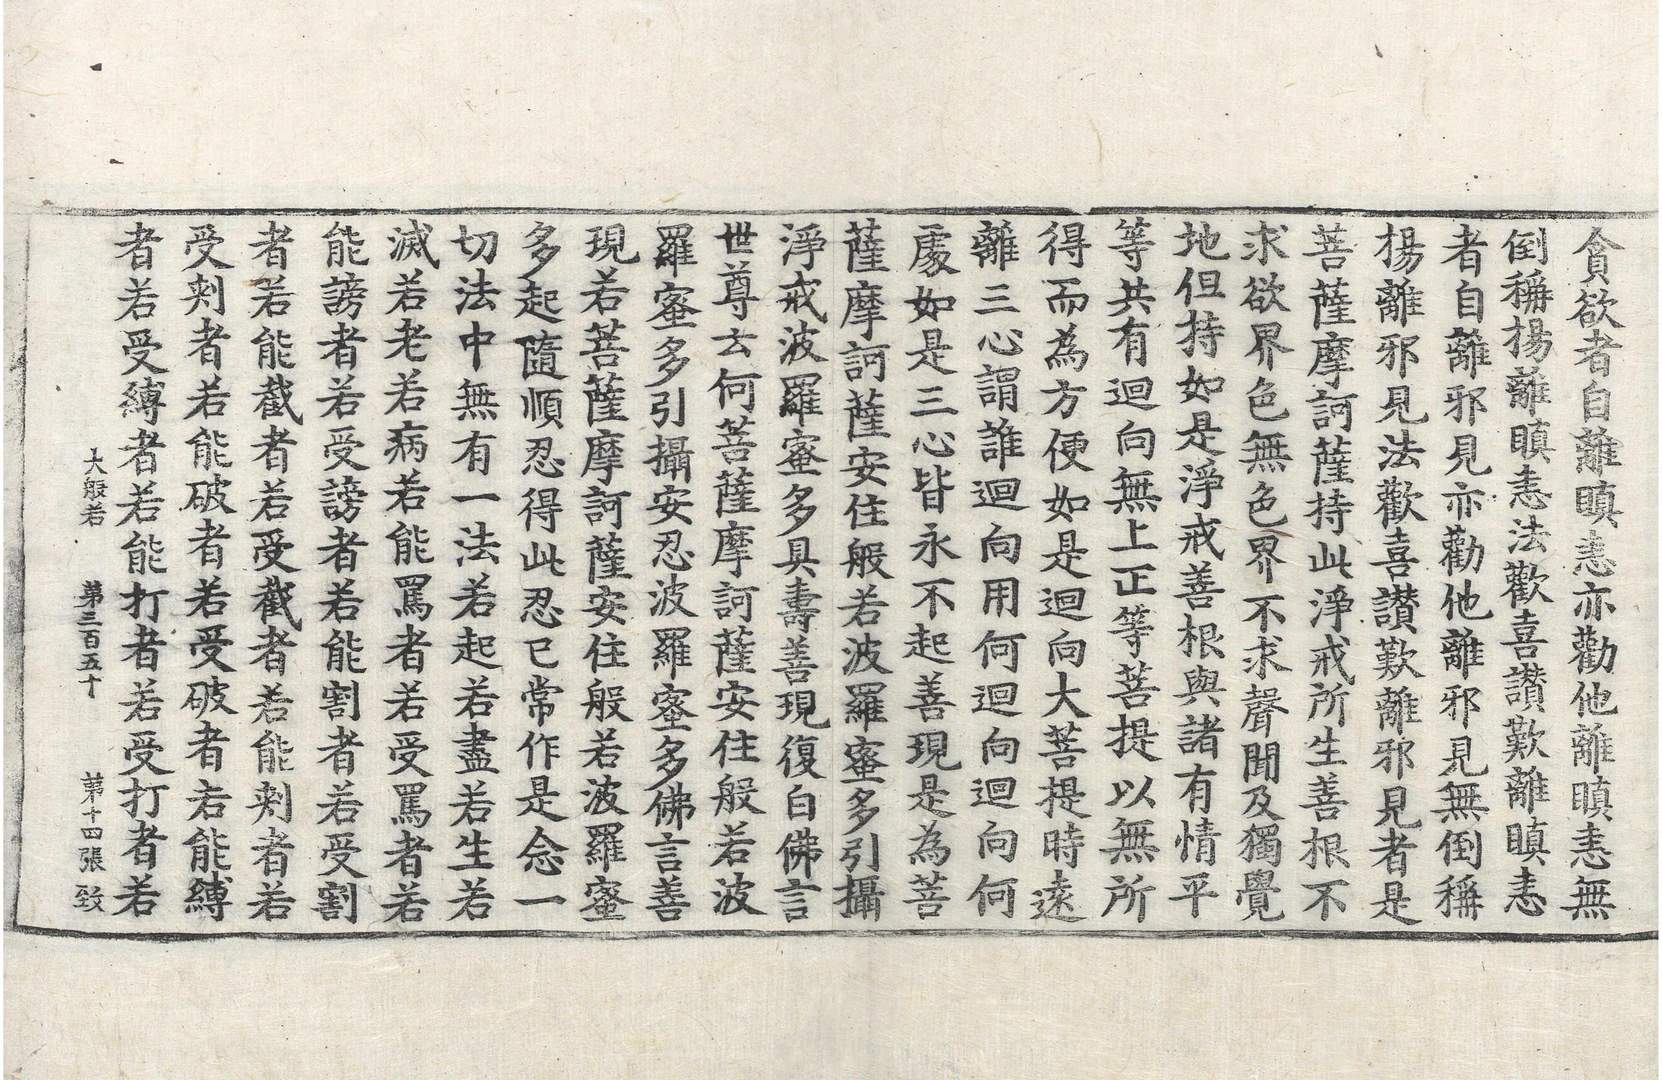 貪欲者自離瞋恚亦勸他離瞋恚無
倒稱揚離瞋恚法歡喜讃歎離瞋恚
者自離邪見亦勸他離邪見無倒稱
揚離邪見法歡喜讃歎離邪見者是
菩薩摩訶薩持此淨戒所生善根不
求欲界色無色界不求聲聞及獨覺
地但持如是淨戒善根與諸有情平
等共有迴向無上正等菩提以無所
得而為方便如是迴向大菩提時遠
離三心謂誰迴向用何迴向迴向何
處如是三心皆永不起善現是為菩
薩摩訶薩安住般若波羅蜜多引攝
淨戒波羅蜜多具壽善現復白佛言
世尊云何菩薩摩訶薩安住般若波
羅蜜多引攝安忍波羅蜜多佛言善
現若菩薩摩訶薩安住般若波羅蜜
多起隨順忍得此忍已常作是念一
切法中無有一法若起若盡若生若
滅若老若病若能罵者若受罵者若
能謗者若受謗者若能割者若受割
者若能截者若受截者若能刾者若
受刾者若能破者若受破者若能縛
者若受縛者若能打者若受打者若
大般若 第三百五十 第十四張 致